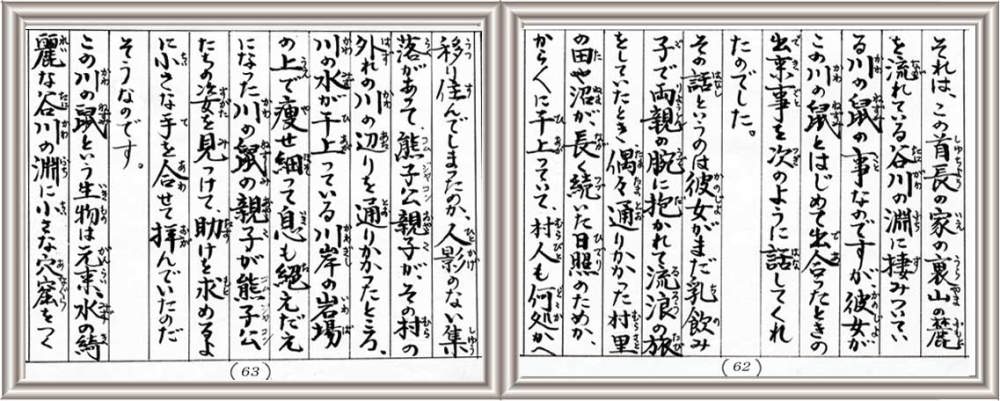 それは、この首長の家の裏山の麓
を流れている谷川の淵に棲みついてい
る川の鼠の事なのですが彼女が
この川の鼠とはじめて出合ったときの
出来事を次のように話してくれ
たのでした。
その話というのは彼女がまだ乳飲み
子で両親の腕に抱かれて流浪の旅
をしていたとき偶々通りかかった村里
の田や沼が長く続いた日照のためか、
からくに干上っていて、村人も何処かへ
(62)
移り住んでしまったのか、人影のない集
落があって、熊子公親子が、その村の
外れの川の辺りを通りかかったところ、
川の水が干上っている川岸の岩場
の上で瘦せ細って息も絶えだえ
になった川の鼠の親子が熊子公
たちの姿を見つけて、助けを求めるよ
に小さな手を合せて拝んでいたのだ
そうなのです。
この川の鼠という生物は元来、水の綺
麗な谷川の淵に小さな穴窟をつく
(63)